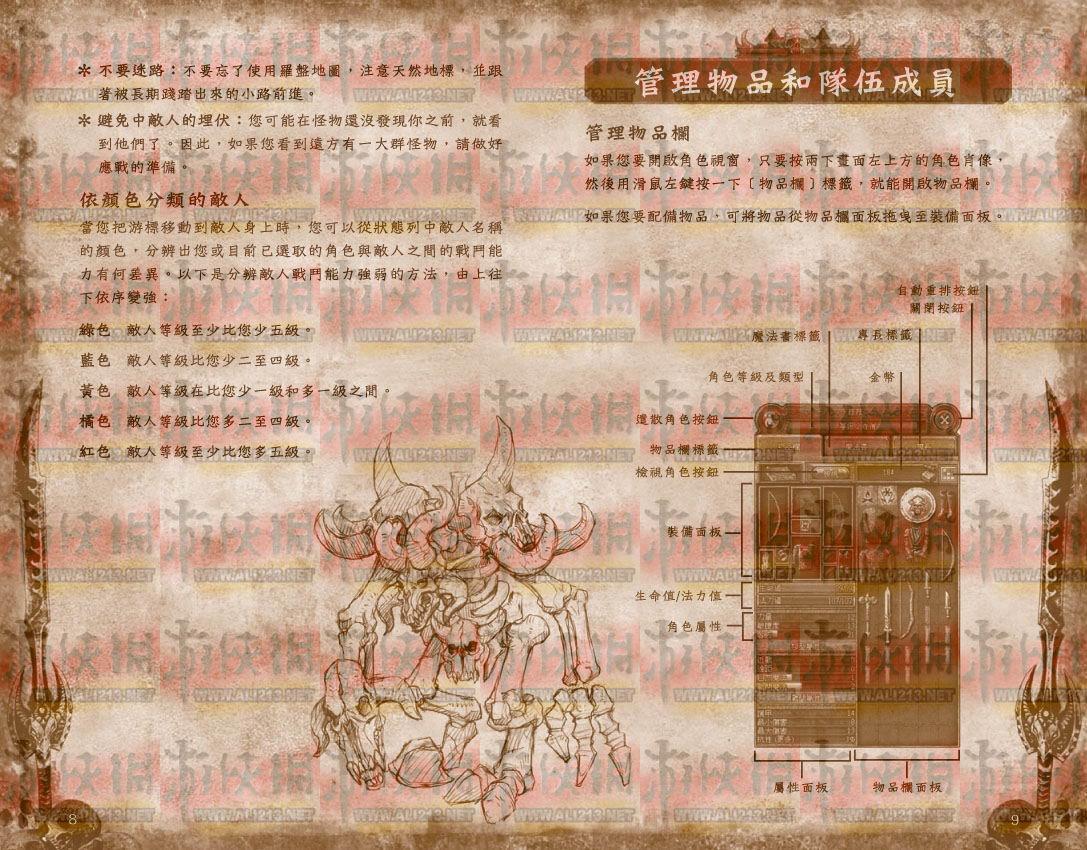 ＊ 不要迷路：不要忘了使用羅盤地圖，注意天然地標，並跟
著被長期踐踏出來的小路前進。
＊ 避免中敵人的埋伏：您可能在怪物還沒發現你之前，就看
到他們了。因此，如果您看到遠方有一大群怪物，請做好
應戰的準備。
依顏色分類的敵人
當您把游標移動到敵人身上時，您可以從狀態列中敵人名稱
的顏色，分辨出您或目前已選取的角色與敵人之間的戰鬥能
力有何差異。以下是分辨敵人戰鬥能力強弱的方法，由上往
下依序變強：
綠色 敵人等級至少比您少五級。
藍色 敵人等級比您少二至四級。
黃色 敵人等級在比您少一級和多一級之間。
橘色 敵人等級比您多二至四級。
紅色 敵人等級至少比您多五級。
8
管理物品和隊伍成員
管理物品欄
如果您要開啟角色視窗，只要按兩下畫面左上方的角色肖像，
然後用滑鼠左鍵按一下〔物品欄〕標籤，就能開啟物品欄。
如果您要配備物品，可將物品從物品欄面板拖曳至裝備面板。
自動重排按鈕
關閉按鈕
魔法書標籤
專長標籤
角色等級及類型
金幣
遣散角色按鈕
物品欄標籤
檢視角色按鈕
裝備面板
生命值/法力值
角色屬性
屬性面板
物品欄面板
9
游俠網
WWW.ALI213.NET